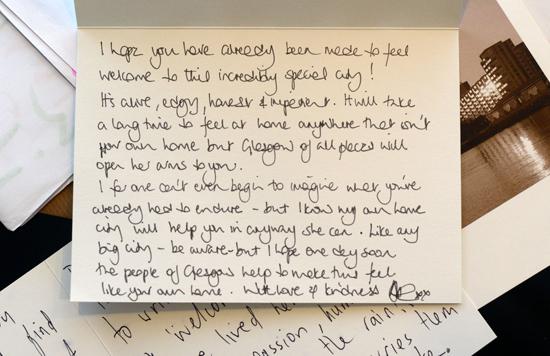 I hope you have already been made to feel
welcome to this incredibly special city!
It's alive, edgy, honest & impenent. It will take
a long time to feel at home anywhere that isn't
your own home but Glasgow of all places will
open her arms to you.
I for one can't even begin to imagine what you've
already had to endure - but I know my own home
city will help you in anyway she can. Like any
big city - be aware - but I hope one day soon
the people of Glasgow help to make this feel
like your own home. With love & kindness xoxo
find
to wri
welco
lived he
passion, hum
the rain
ries them